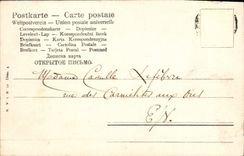 Postkarte – Carte postale
Weltpostverein – Union postale universelle
Correspondenzkarte – Dopisnice –
Levelező-Lap – Korespondenční listek
Dopisnica – Karta Korespondencyjna
Briefkaart – Cartolina Postale –
Brefkort – Tarjeta Postal – Postcard
ОТКРЫТОЕ ПИСЬМО.
Madame Camille Lefebvre
rue des
E/V.